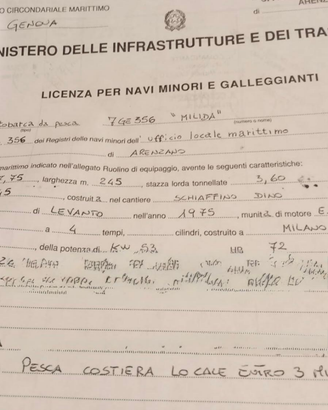 O CIRCONDARIALE MARITTIMO
GENOVA
di
NISTERO DELLE INFRASTRUTTURE E DEI TRA
LICENZA PER NAVI MINORI E GALLEGGIANTI
obarca da pesca 7GE356 "MILIDA"
356 dei Registri delle navi minori dell'ufficio locale marittimo
di ARENZANO
marittimo indicato nell'allegato Ruolino di equipaggio, avente le seguenti caratteristiche:
7,75, larghezza m. 245, stazza lorda tonnellate 3,60
45, costruita nel cantiere SCHIAFFINO DINO
di LEVANTO nell'anno 1975, munita di motore E.
a 4 tempi, cilindri, costruito a MILANO
, della potenza di KW 53 HP 72
PESCA COSTIERA LOCALE ENTRO 3 MI